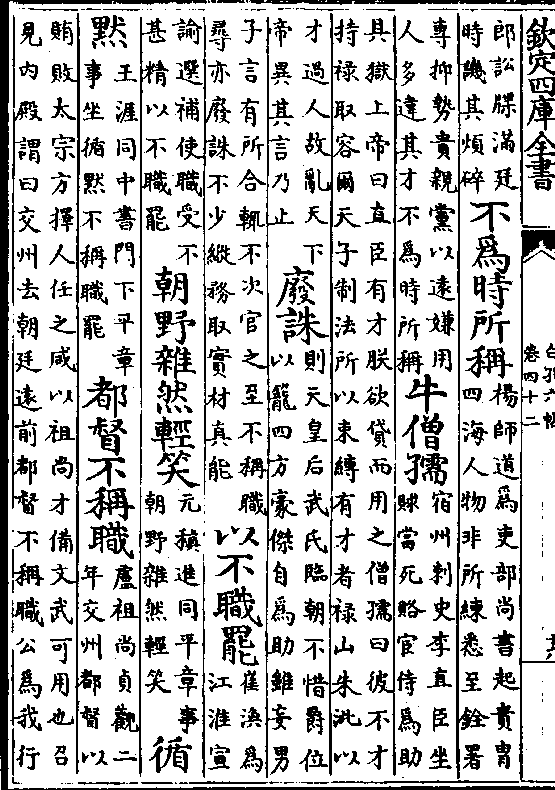 欽定四庫全書
白孔六帖
卷四十二
郎訟牒滿廷
時譏其煩碎
不為時所稱
楊師道為吏部尚書起貴胄
四海人物非所練悉至銓署
專抑勢貴親黨以遠嫌用
人多違其才不為時所稱
牛僧孺
宿州刺史李直臣坐
賕當死賂宦侍為助
具獄上帝曰直臣有才朕欲貸而用之僧孺曰彼不才
持禄取容爾天子制法所以束縛有才者禄山朱泚以
才過人故亂天下
帝異其言乃止
廢誅
則天皇后武氏臨朝不惜爵位
以籠四方豪傑自為助雖妄男
子言有所合輒不次官之至不稱職
尋亦廢誅不少縱務取實材真能
以不職罷
崔渙為
江淮宣
諭選補使職受不
甚精以不職罷
朝野雜然輕笑
元稹進同平章事
朝野雜然輕笑
循
默
王涯同中書門下平章
事坐循默不稱職罷
都督不稱職
盧祖尚貞觀二
年交州都督以
賄敗太宗方擇人任之咸以祖尚才備文武可用也召
見内殿謂曰交州去朝廷遠前都督不稱職公為我行